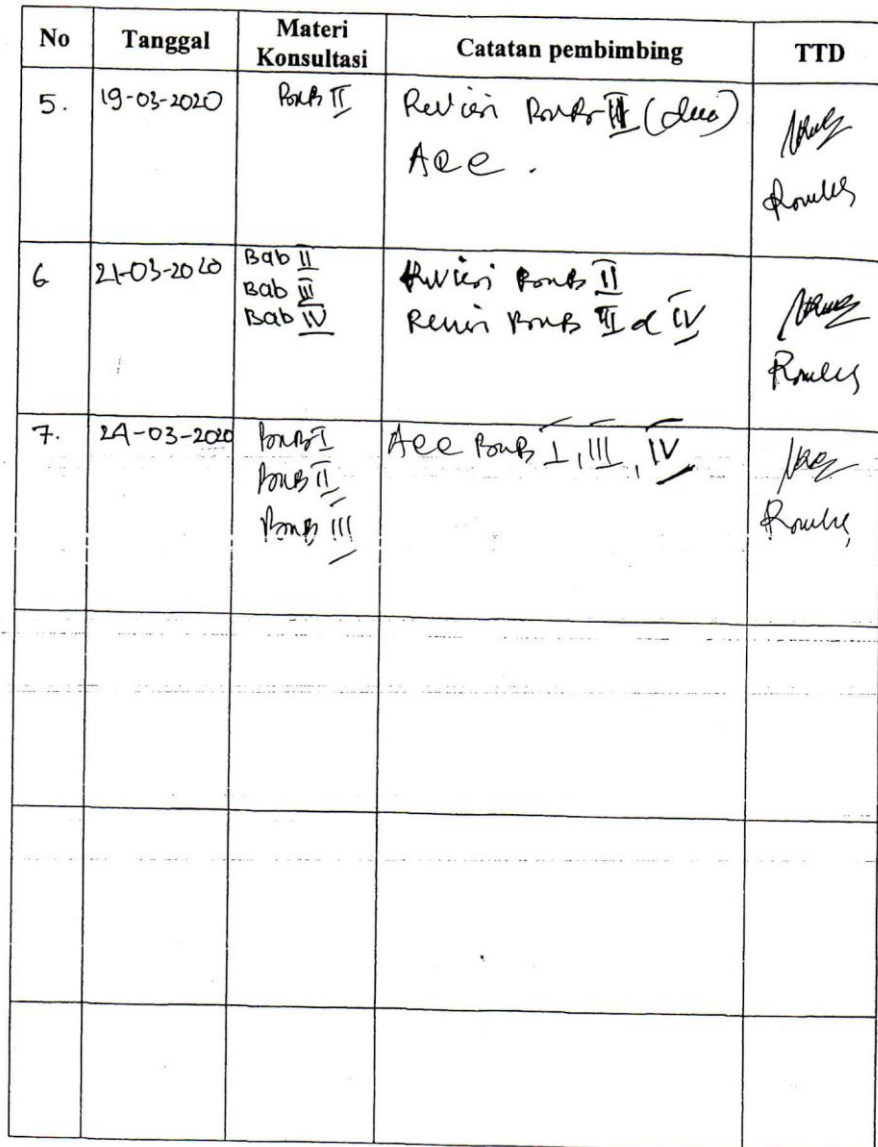 No Tanggal Materi Konsultasi Catatan pembimbing TTD
5. 19-03-2020 BAB II Revisi BAB II (dua)
Acc.
6 21-03-2020 Bab II Revisi BAB II
Bab III Revisi BAB III & IV
Bab IV
7. 24-03-2020 BAB I Acc BAB I, III, IV
BAB II
BAB III